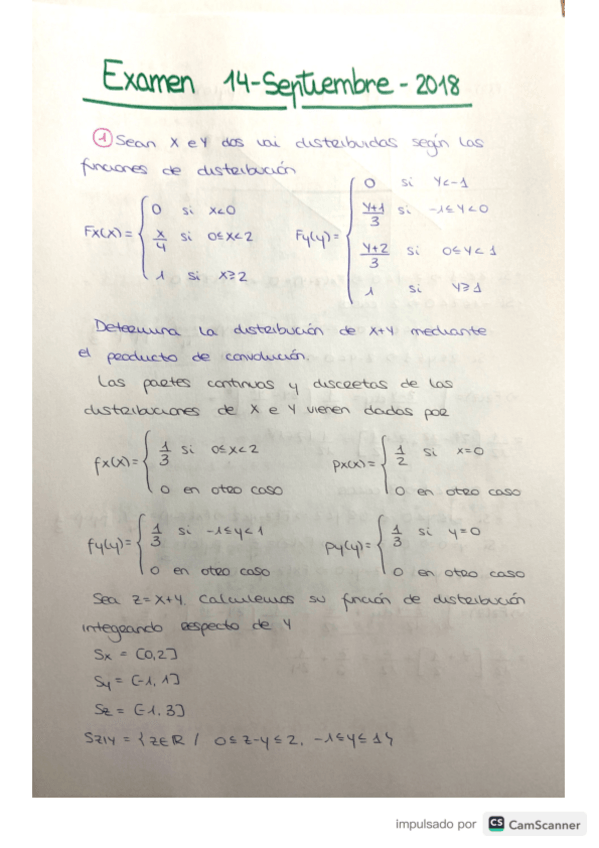 Examen 14-Septiembre-2018
① Sean X e Y dos vai distribuidas según las
funciones de distribución
Fx(x)= { 0 si x<0
x/4 si 0≤x<2
1 si x≥2
Fy(y)= { 0 si y<-1
y+1/3 si -1≤y<0
y+2/3 si 0≤y<1
1 si y≥1
Determina la distribución de x+y mediante
el producto de convolución.
Las partes continuas y discretas de las
distribuciones de X e Y vienen dadas por
fx(x)= { 1/3 si 0≤x<2
0 en otro caso
px(x)= { 1/2 si x=0
0 en otro caso
fy(y)= { 1/3 si -1≤y<1
0 en otro caso
py(y)= { 1/3 si y=0
0 en otro caso
Sea z=x+y. Calculemos su función de distribución
integrando respecto de Y
Sx = [0,2]
Sy = [-1,1]
Sz = [-1,3]
Sz|y = {z∈R / 0≤z-y≤2, -1≤y≤1}
impulsado por CS CamScanner